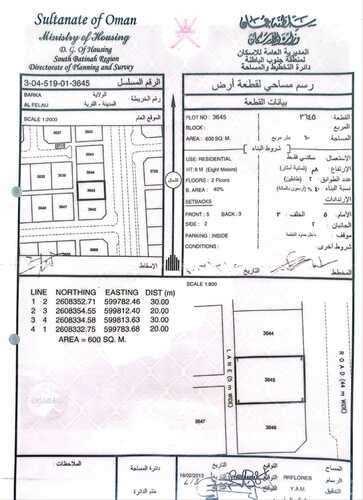 Sultanate of Oman
Ministry of Housing
D. G. Of Housing
South Batinah Region
Directorate of Planning and Survey
سلطنة عمان
وزارة الإسكان
المديرية العامة للإسكان
لمنطقة جنوب الباطنة
دائرة التخطيط والمساحة
3-04-519-01-3645
الرقم المسلسل
رسم مساحي لقطعة أرض
BARKA
الولاية
AL FELAIJ
المدينة - القرية
رقم الخريطة
بيانات القطعة
SCALE 1:2000
الموقع العام
PLOT NO: 3645
٣٦٤٥
القطعة
BLOCK:
المربع
AREA: 600 SQ. M.
٦٠٠ متر مربع
المساحة
شروط البناء
USE: RESIDENTIAL
سكني فقط
الإستعمال
HT: 8 M (Eight Meters)
الإرتفاع
FLOORS: 2 Floors
عدد الطوابق
B. AREA: 40%
نسبة البناء
SETBACKS
الإرتدادات
FRONT: 5
BACK: 3
الخلف ٣
الأمام ٥
SIDE: 2
الجانبان ٢
PARKING: INSIDE
موقف
CONDITIONS:
شروط أخرى
الشمال
الإسقاط
التاريخ
SCALE 1:800
LINE NORTHING EASTING DIST (m)
1 2 2608352.71 599782.46 30.00
2 3 2608354.55 599812.40 20.00
3 4 2608334.58 599813.63 30.00
4 1 2608332.75 599783.68 20.00
AREA = 600 SQ. M.
3644
3645
3646
3647
LANE (9 m WIDE)
ROAD (44 m WIDE)
الملاحظات
دائرة المساحة
ختم الدائرة
التاريخ
التوقيع
16/02/2013
RRFLORES
Y.A.M.
المساح
الرسام
التدقيق